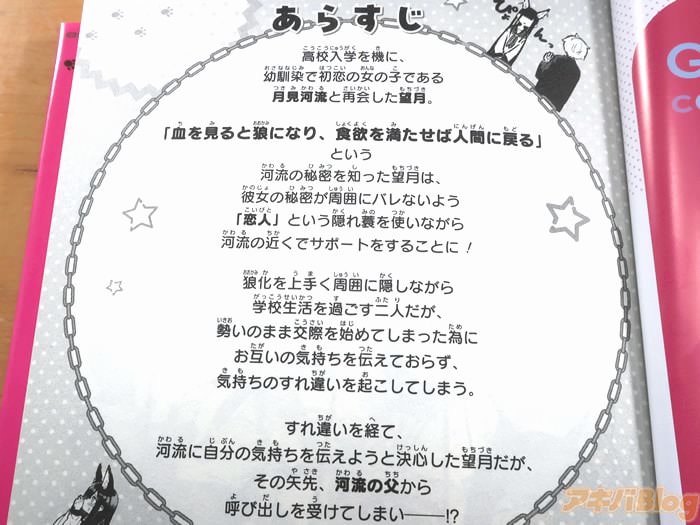 あらすじ
ぴょんっ
高校入学を機に、
幼馴染で初恋の女の子である
月見河流と再会した望月。
「血を見ると狼になり、食欲を満たせば人間に戻る」
という
河流の秘密を知った望月は、
彼女の秘密が周囲にバレないよう
「恋人」という隠れ蓑を使いながら
河流の近くでサポートをすることに！
狼化を上手く周囲に隠しながら
学校生活を過ごす二人だが、
勢いのまま交際を始めてしまった為に
お互いの気持ちを伝えておらず、
気持ちのすれ違いを起こしてしまう。
すれ違いを経て、
河流に自分の気持ちを伝えようと決心した望月だが、
その矢先、河流の父から
呼び出しを受けてしまい——!?
アキバBlog